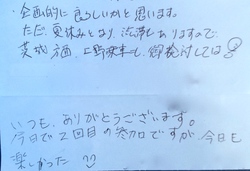 ・企画的に良ろしいかと思います。
ただ、夏休みとなり、渋滞しありますので
茨城方面、上野原車し、御検討しては
いつも、ありがとうございます。
今日で2回目の参加ですが、今日も
楽しかった